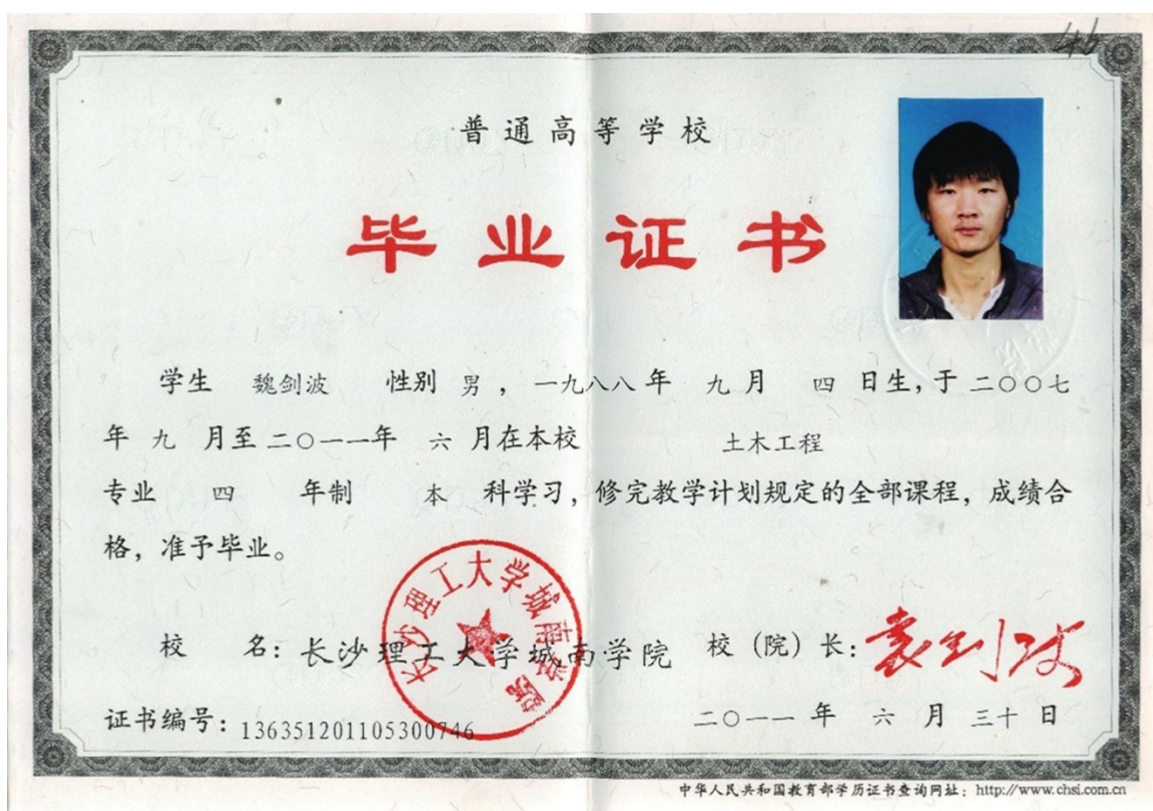 普通高等学校
毕业证书
学生 魏剑波 性别 男 ，一九八八 年 九 月 四 日生，于 二〇〇七
年 九 月至 二〇一一 年 六 月在本校 土木工程
专业 四 年制 本 科学习，修完教学计划规定的全部课程，成绩合
格，准予毕业。
长沙理工大学城南学院
校 名：长沙理工大学城南学院 校（院）长：
证书编号：136351201105300746 二〇一一 年 六 月 三十 日
中华人民共和国教育部学历证书查询网址：http://www.chsi.com.cn